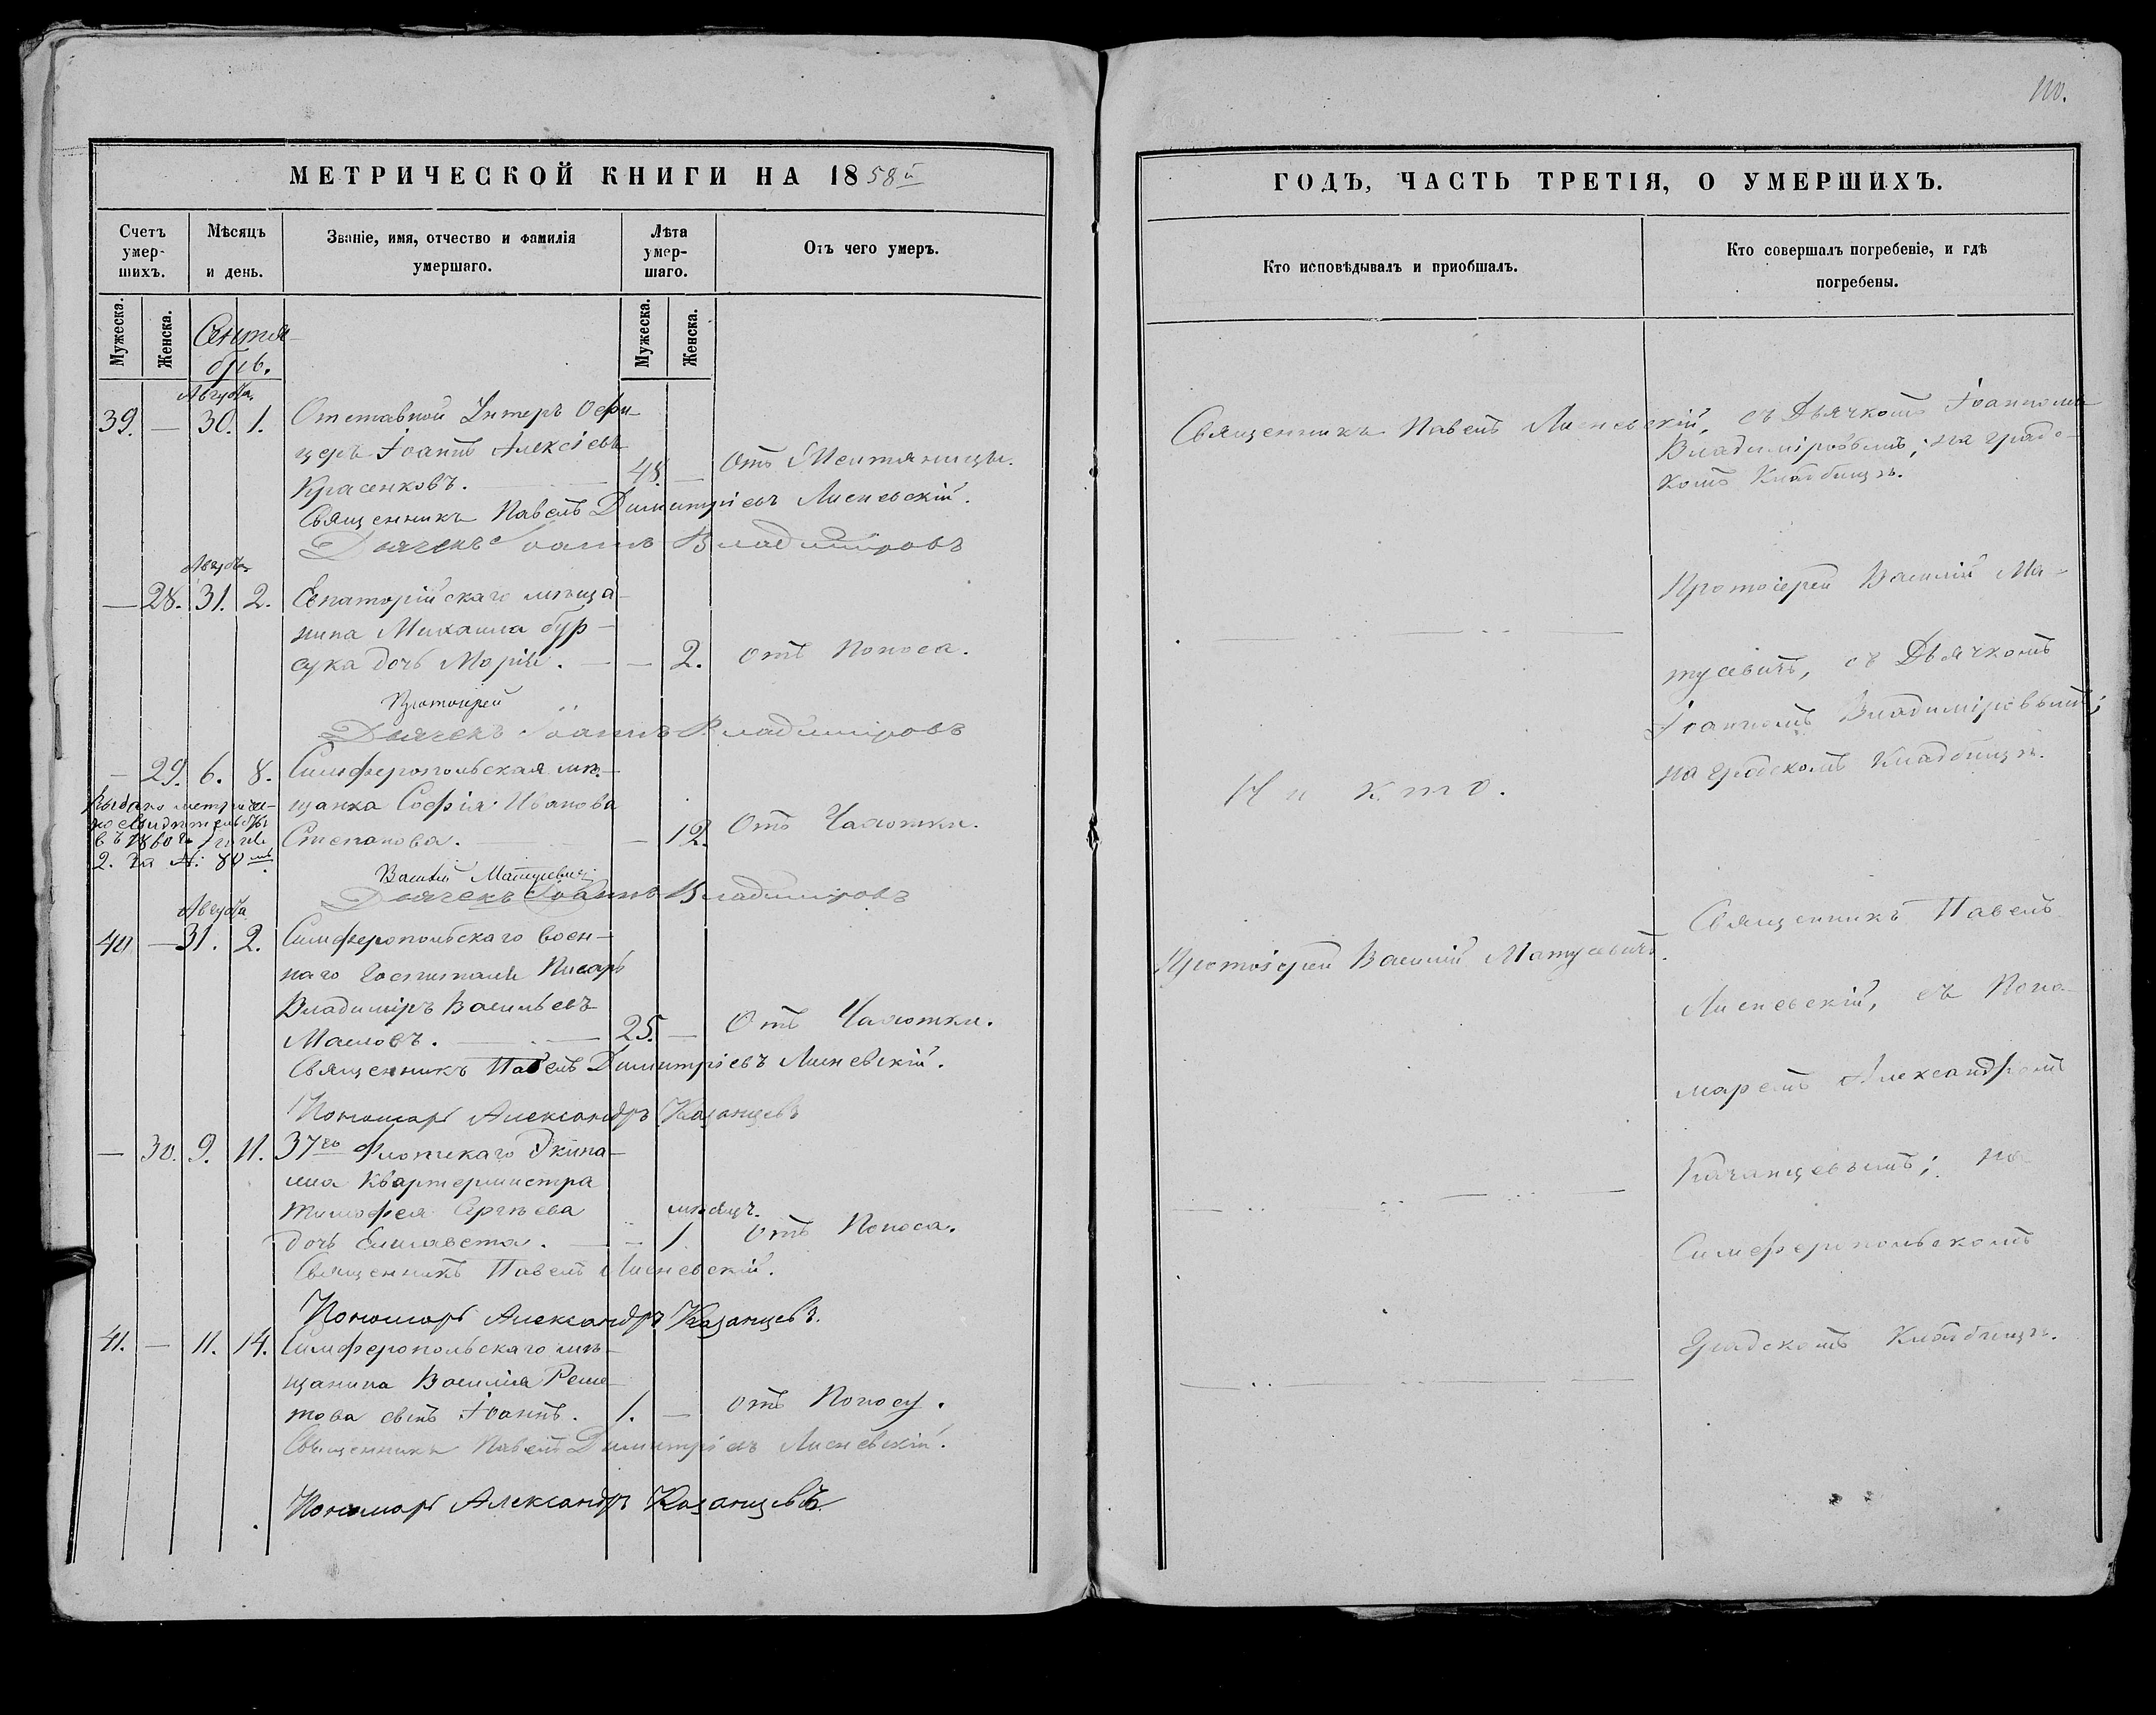 МЕТРИЧЕСКОЙ КНИГИ НА 1858й
Счетъ умер-
шихъ.
Мѣсяцъ
и день.
Званіе, имя, отчество и фамилія
умершаго.
Лѣта
умер-
шаго.
Отъ чего умеръ.
Мужеска.
Женска.
Сентя-
брь.
Мужеска.
Женска.
Августа
39. — 30. 1. Отставной Унтеръ Офи-
церъ Іоаннъ Алексіевъ
Красенковъ. 48. — Отъ
Священникъ Павелъ Димитріевъ Лисневскій.
Дьячекъ Іоаннъ Владиміровъ
Августа
— 28. 31. 2. Евпаторійскаго мѣща-
нина Михаила Бур-
сука дочь Марія. — 2. отъ Поноса.
Протоіерей
Дьячекъ Іоаннъ Владиміровъ
— 29. 6. 8. Симферопольская мѣ-
щанка Софія Иванова
Степанова. — 12. Отъ Чахотки.
Выдано метриче-
ское свидѣтельство
въ 1860 г.
2. за №: 80
Василій Матусевичъ
Дьячекъ Іоаннъ Владиміровъ
Августа
40 — 31. 2. Симферопольскаго воен-
наго Госпиталя Писарь
Владиміръ Васильевъ
Масловъ. 25. — Отъ Чахотки.
Священникъ Павелъ Димитріевъ Лисневскій.
Пономарь Александръ Казанцевъ
— 30. 9. 11. 37го Флотскаго Экипа-
жа Квартермистра
Тимофея Сергѣева мѣсяцъ.
дочь Елисавета. 1 отъ Поноса.
Священникъ Павелъ Лисневскій.
Пономарь Александръ Казанцевъ.
41. — 11. 14. Симферопольскаго мѣ-
щанина Василія Реше-
това сынъ Іоаннъ. 1. — отъ Поносу.
Священникъ Павелъ Димитріевъ Лисневскій.
Пономарь Александръ Казанцевъ.
110.
ГОДЪ, ЧАСТЬ ТРЕТІЯ, О УМЕРШИХЪ.
Кто исповѣдывалъ и приобщалъ.
Кто совершалъ погребеніе, и гдѣ
погребены.
Священникъ Павелъ Лисневскій, съ Дьячкомъ Іоанномъ
Владиміровымъ, на градс-
комъ Кладбищѣ.
Протоіерей Василій Ма-
тусевичъ, съ Дьячкомъ
Іоанномъ Владиміровымъ;
на градскомъ Кладбищѣ.
Ни кто.
Протоіерей Василій Матусевичъ.
Священникъ Павелъ
Лисневскій, съ Поно-
маремъ Александромъ
Казанцевымъ; на
Симферопольскомъ
Градскомъ Кладбищѣ.